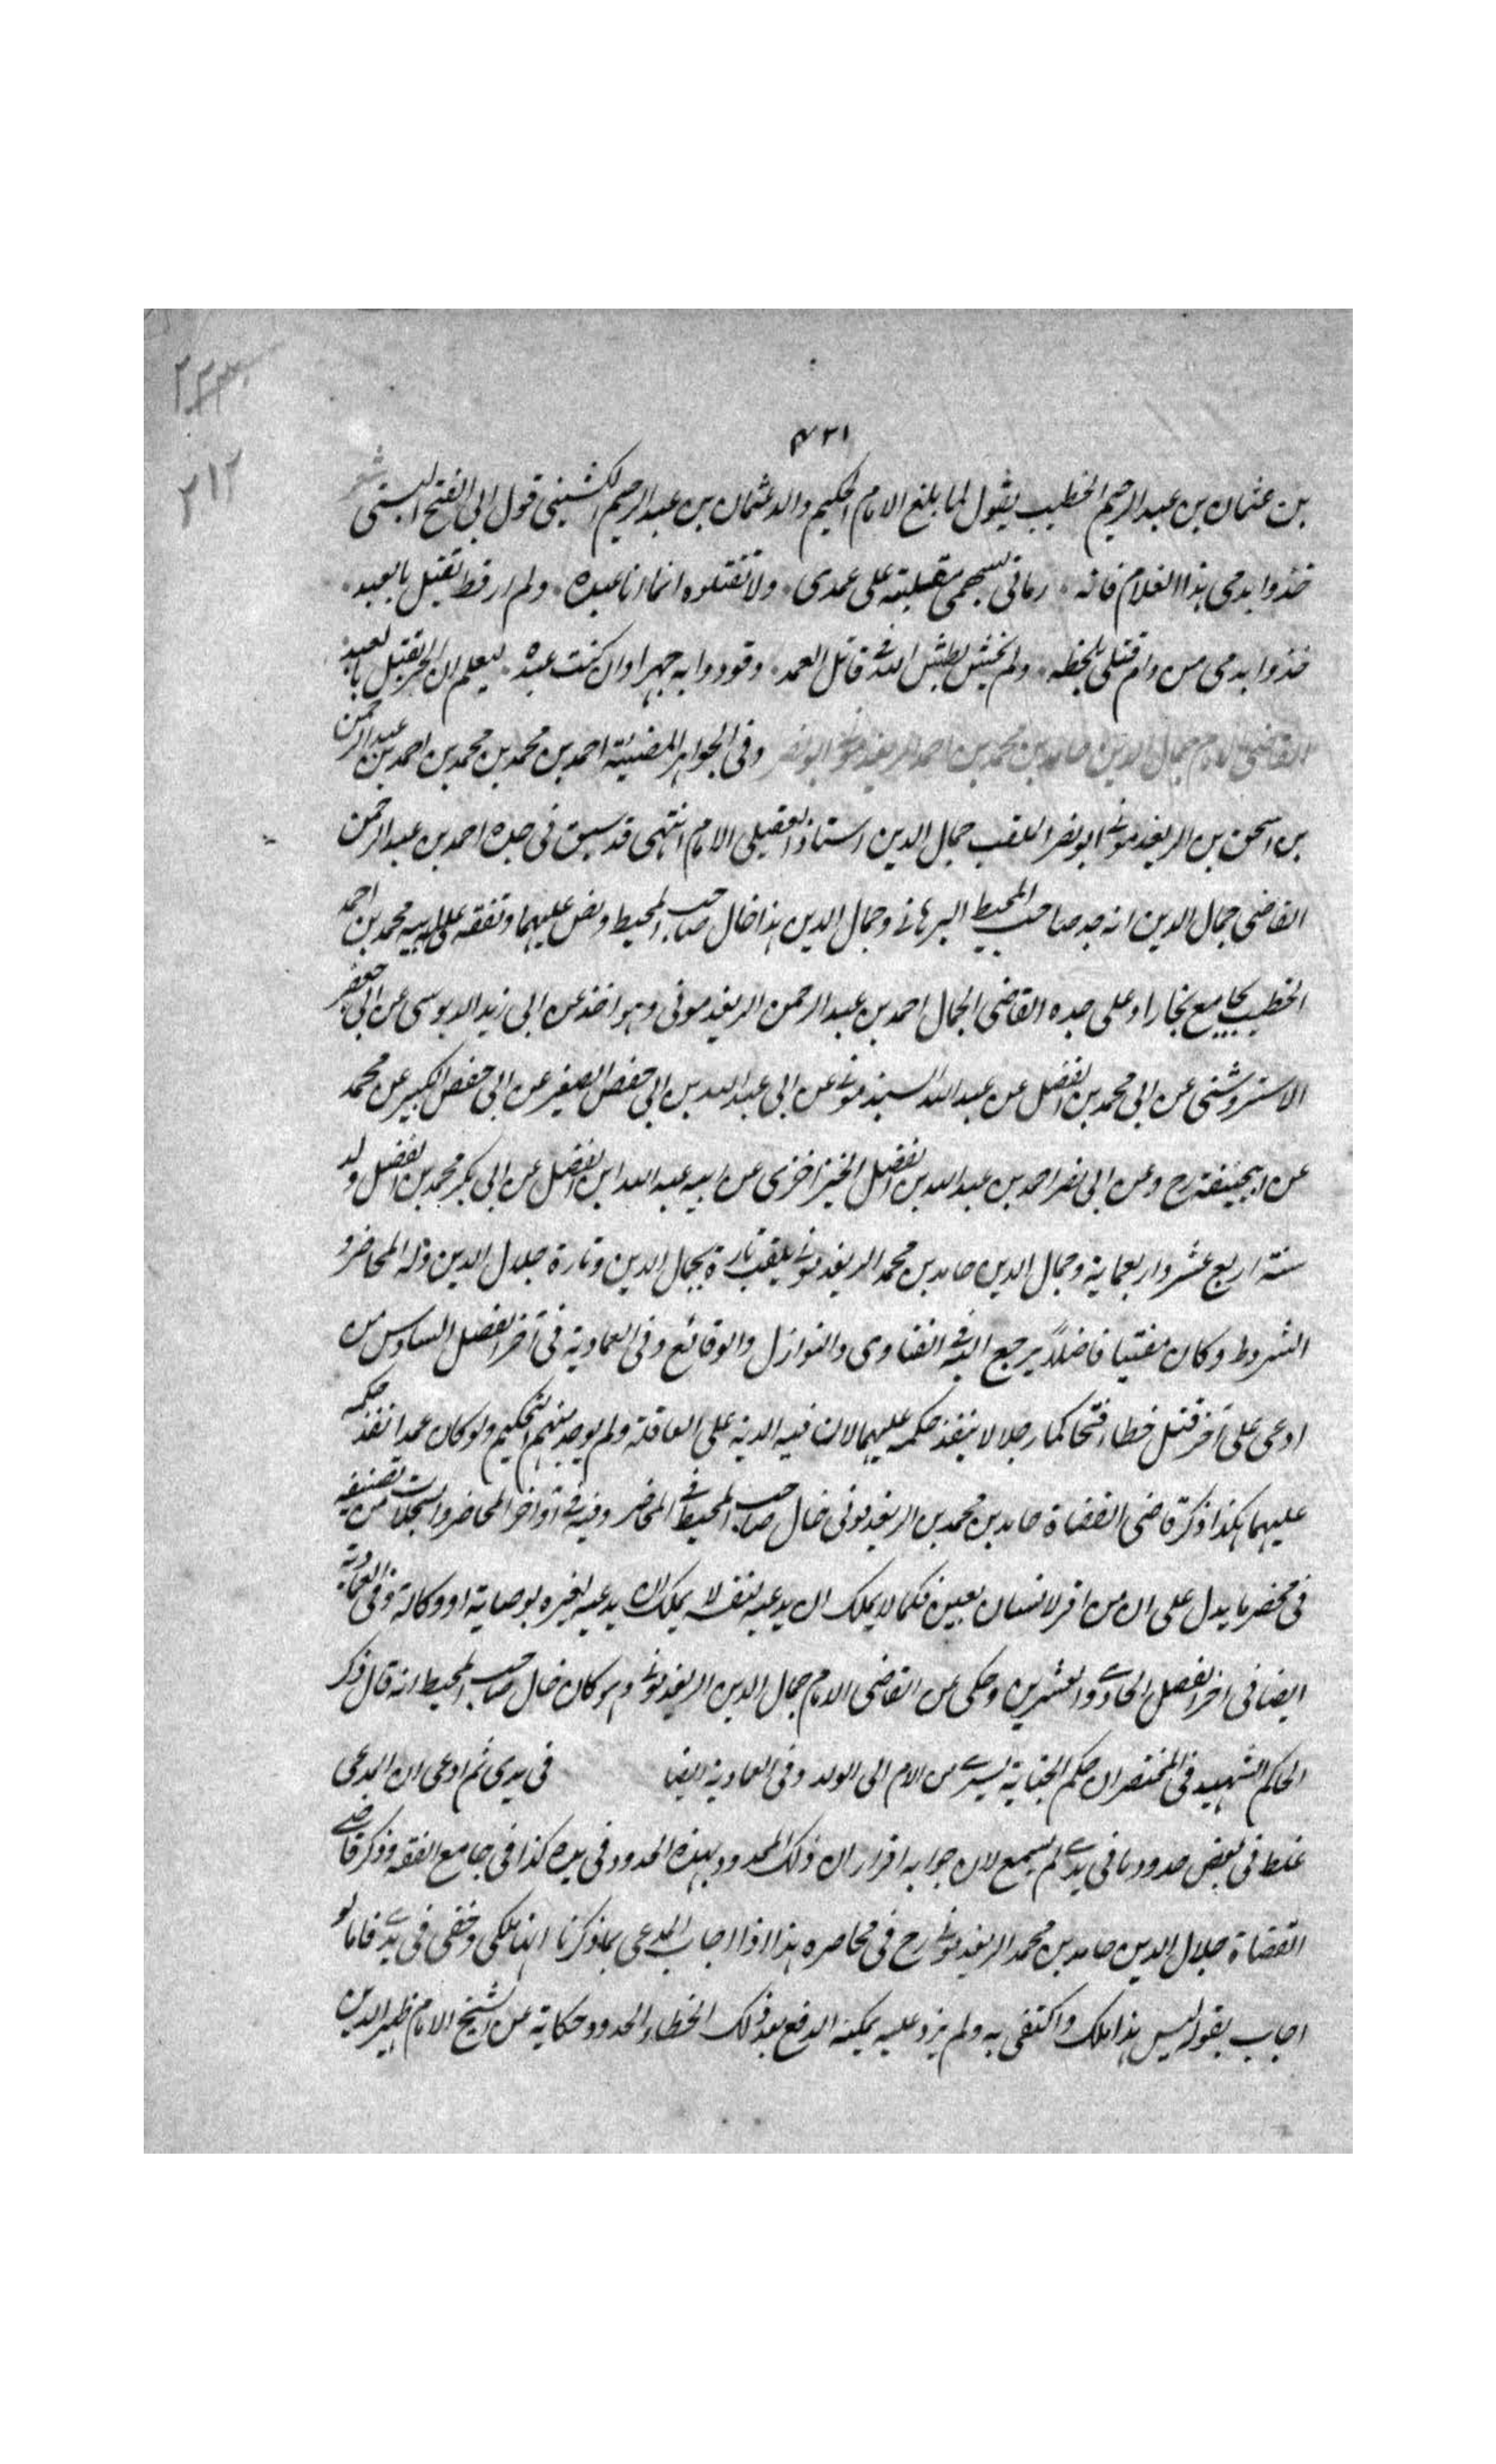 ٢٣٣
٢١٢
٤٢١
بن عثمان بن عبد الرحيم الخطيب يقول لما بلغ الامام الحكيم والد عثمان بن عبد الرحيم الكشيني قول ابي الفتح البستي شعر
خذوا بدمي هذا الغلام فانه رماني بسهمي مقلتيه على عمدي ولا تقتلوه انما انا عبده ولم ار قط يقتل بالعبد
خذوا بدمي من رام قتلي بلحظه ولم يخش بطش الله في قاتل العمد وقودوا به جهرا وان كنت عبده ليعلم ان الحر يقتل بالعبد
القاضي الامام جمال الدين حامد بن محمد بن احمد الريغدموني ابو نصر وفي الجواهر المضيئة احمد بن محمد بن محمد بن احمد بن عبد الرحمن
بن اسحق بن الريغدموني ابو نصر الملقب جمال الدين استاذ العقيلي الامام انتهى قد سبق في جده احمد بن عبد الرحمن
القاضي جمال الدين انه جد صاحب المحيط البرهاني وجمال الدين هذا خال صاحب المحيط ونص عليهما وتفقه على ابيه محمد بن احمد
الخطيب بجامع بخارا وعلى جده القاضي الجمال احمد بن عبد الرحمن الريغدموني وهو اخذ عن ابي زيد الدبوسي عن ابي جعفر
الاستروشني عن ابي محمد بن الفضل عن عبد الله السبذموني عن ابي عبد الله بن ابي حفص الصغير عن ابي حفص الكبير عن محمد
عن ابيحنيفة رح وعن ابي نصر احمد بن عبد الله بن الفضل الخيزاخزي عن ابيه عبد الله ابن الفضل عن ابي بكر محمد بن الفضل ولد
سنة اربع عشر واربعماية وجمال الدين حامد بن محمد الريغدموني يلقب تارة بجمال الدين وتارة جلال الدين وله المحاضر و
الشروط وكان مفتيا فاضلا يرجع اليه في الفتاوى والنوازل والوقائع وفي العمادية في آخر الفصل السادس من
ادعى على آخر قتل خطاء فتحاكما رجلا لا ينفذ حكمه عليهما لان فيه الدية على العاقلة ولم يوجد منهم التحكيم ولو كان عمدا نفذ حكمه
عليهما هكذا ذكر قاضي القضاة حامد بن محمد بن الريغدموني خال صاحب المحيط في المحاضر وفيه في آواخر المحاضر والسجلات من تصنيفه
في محضر ما يدل على ان من اقر لانسان بعين فكما لا يملك ان يدعيه لنفسه لا يملك ان يدعيه لغيره بوصاية او وكالة وفي العمادية
ايضا في آخر الفصل الحادي والعشرين وحكي عن القاضي الامام جمال الدين الريغدموني وهو كان خال صاحب المحيط انه قال ذكر
الحاكم الشهيد في المختصر ان حكم الجناية يسري من الام الى الولد وفي العمادية ايضا في يدي ثم ادعى ان المدعي
غلط في بعض حدود ما في يدي لم يسمع لان جوابه اقرار ان ذلك المحدود بهذه الحدود في يده كذا في جامع الفقه وذكر قاضي
القضاة جلال الدين حامد بن محمد الريغدموني رح في محاضره هذا اذا اجاب المدعي بما ذكرنا انها ملكي وحقي في يدي فاما لو
اجاب بقوله ليس هذا ملك واكتفى به ولم يزد عليه يمكنه الدفع بعد ذلك الخطاء الحدود حكاية عن الشيخ الامام ظهير الدين